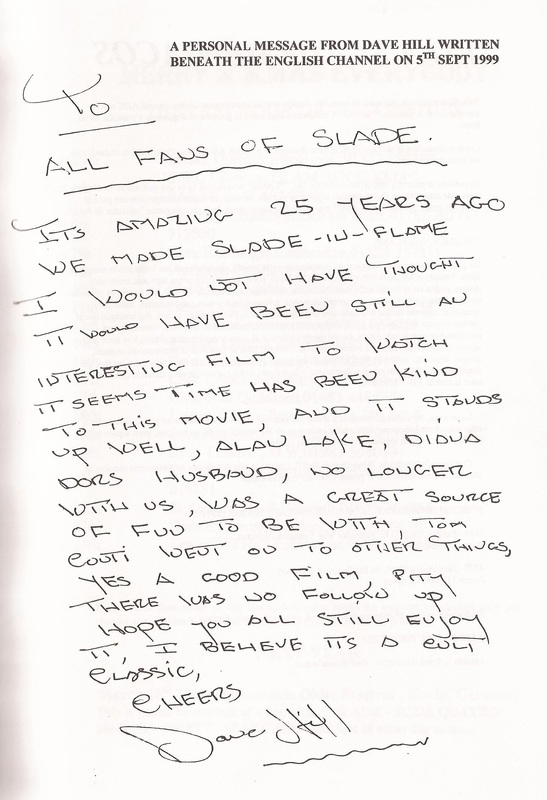 A PERSONAL MESSAGE FROM DAVE HILL WRITTEN
BENEATH THE ENGLISH CHANNEL ON 5TH SEPT 1999
To
ALL FANS OF SLADE.
ITS AMAZING 25 YEARS AGO
WE MADE SLADE-IN-FLAME
I WOULD NOT HAVE THOUGHT
IT WOULD HAVE BEEN STILL AN
INTERESTING FILM TO WATCH
IT SEEMS TIME HAS BEEN KIND
TO THIS MOVIE, AND IT STANDS
UP WELL, ALAN LAKE, DIANA
DORS HUSBAND, NO LONGER
WITH US, WAS A GREAT SOURCE
OF FUN TO BE WITH, TOM
CONTI WENT ON TO OTHER THINGS,
YES A GOOD FILM, PITY
THERE WAS NO FOLLOW UP
HOPE YOU ALL STILL ENJOY
IT, I BELIEVE ITS A CULT
CLASSIC,
CHEERS
Dave Hill